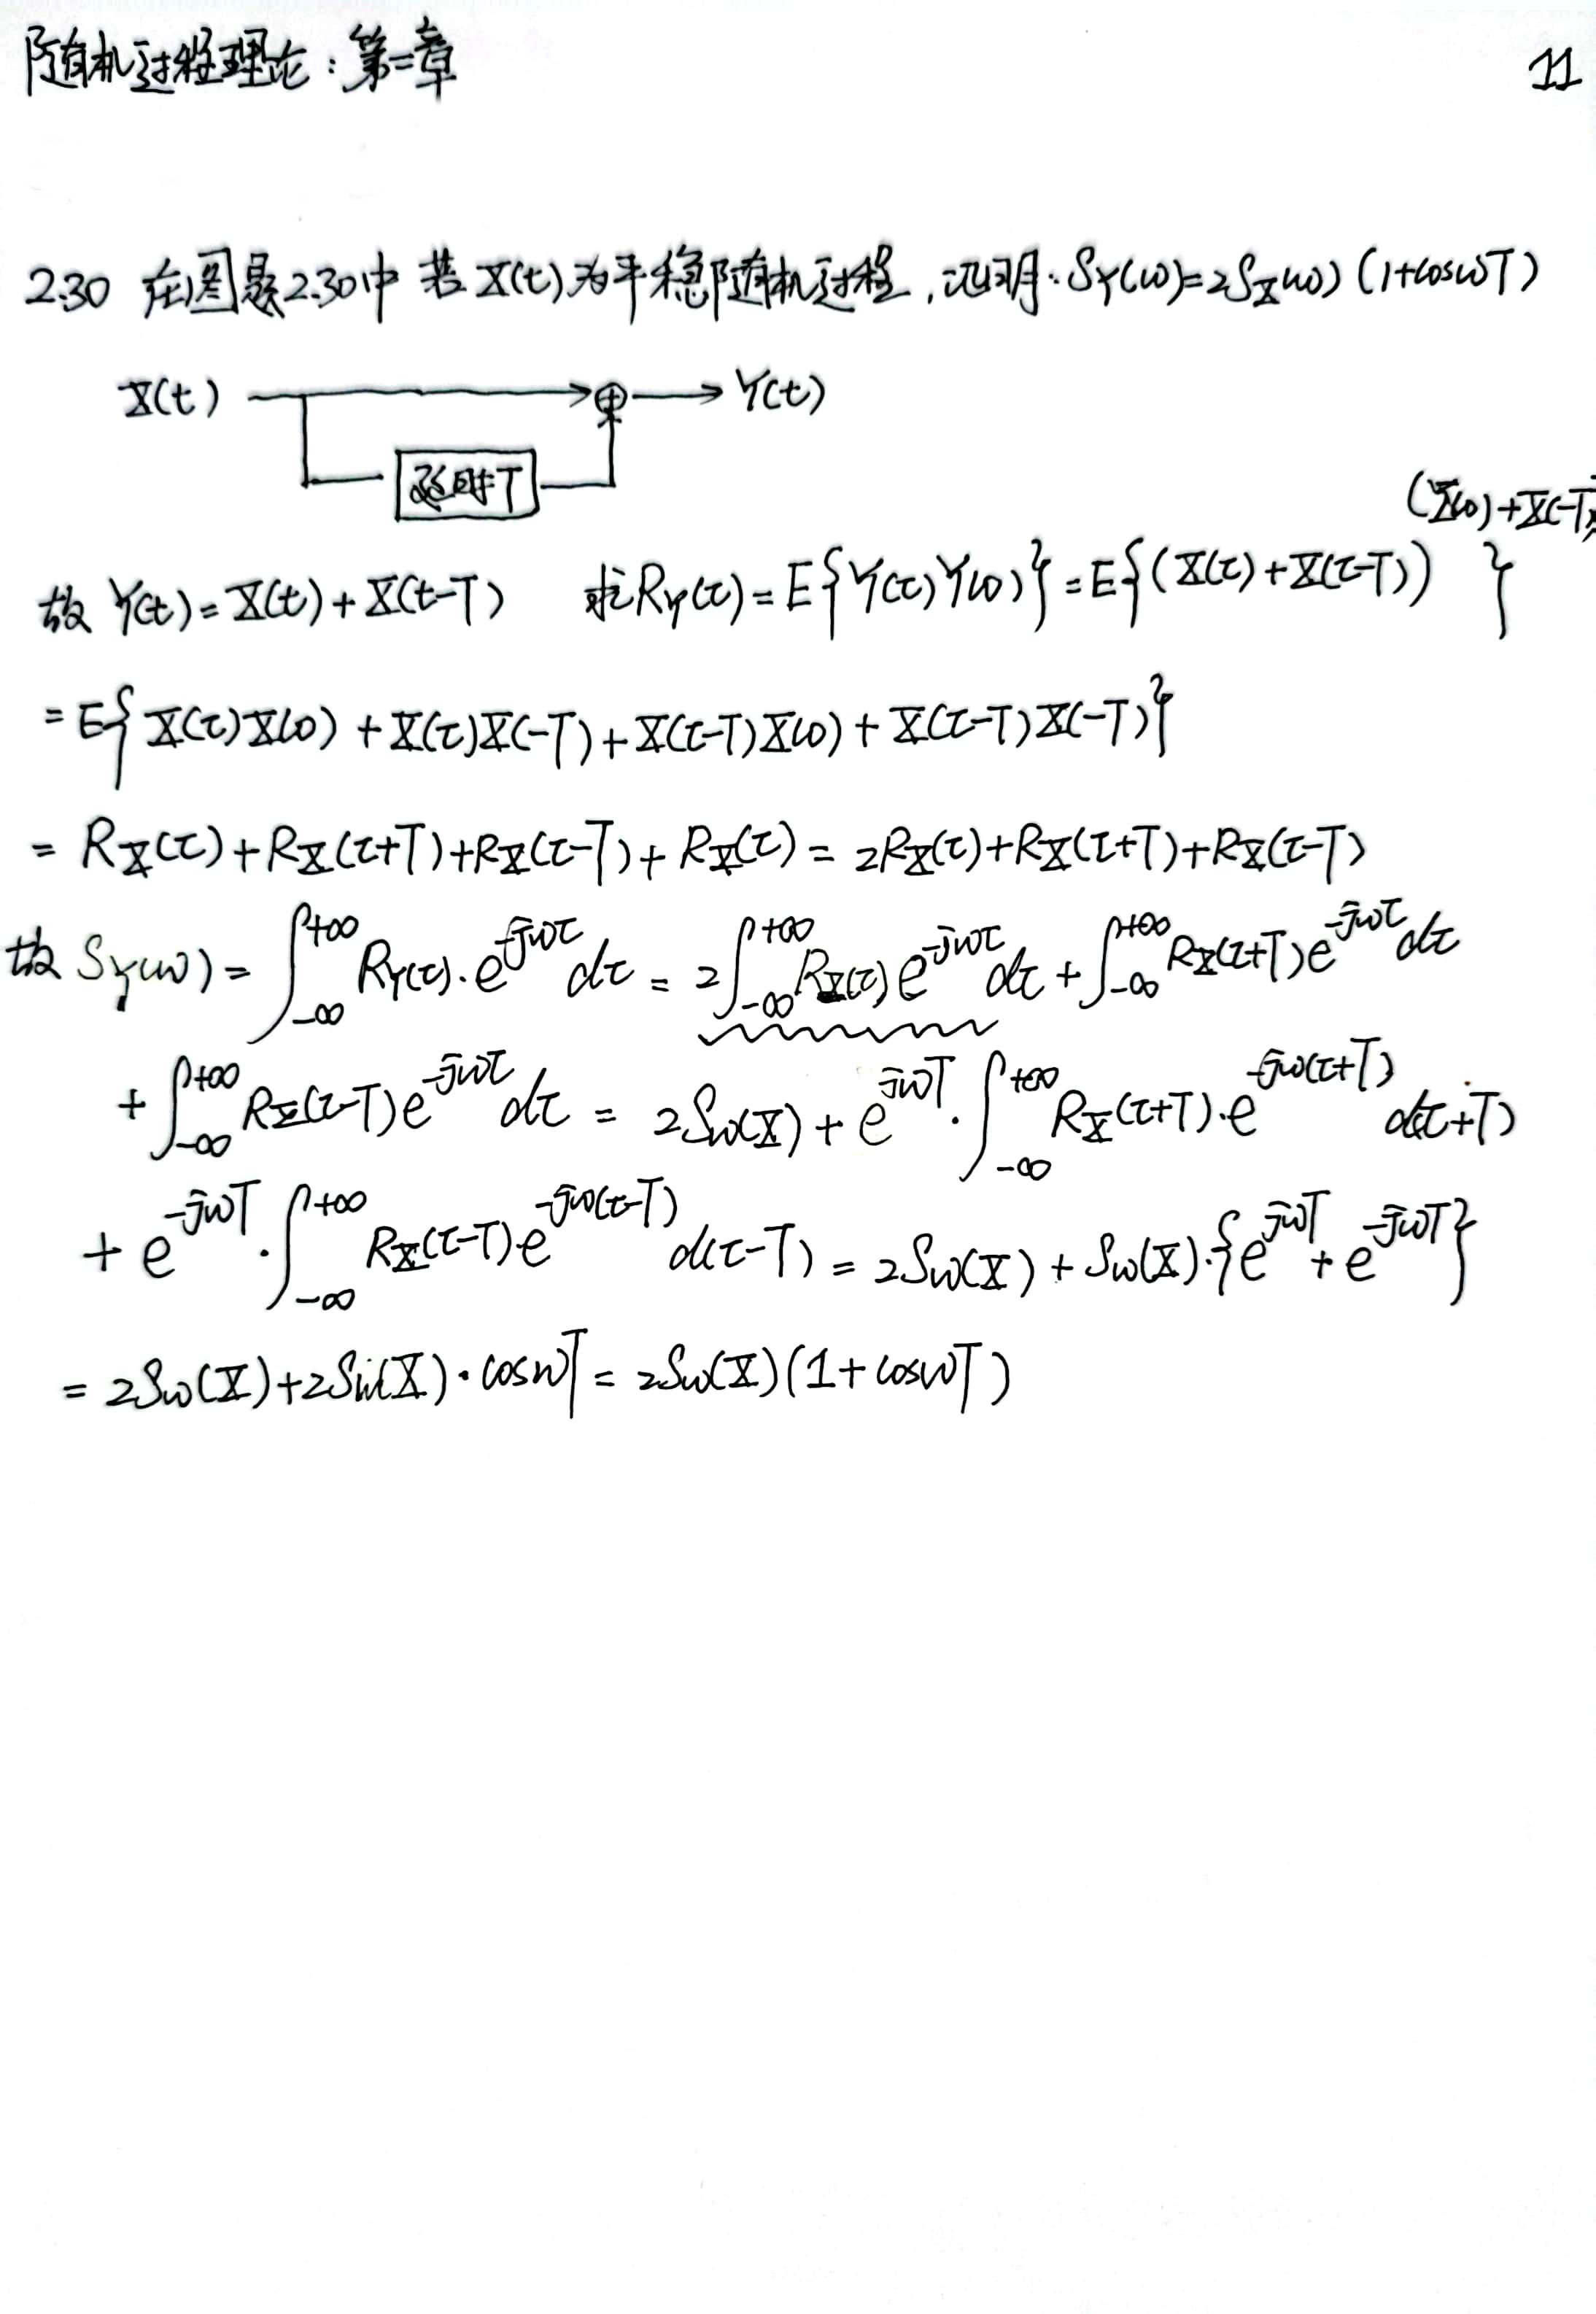 随机过程理论：第二章 11
2.30 在图题2.30中 若X(t)为平稳随机过程，证明：S_Y(ω)=2S_X(ω)(1+cosωT)
X(t) ⊕ Y(t)
延时T
(X(0)+X(-T))
故 Y(t)=X(t)+X(t-T) 求R_Y(τ)=E{Y(τ)Y(0)}=E{(X(τ)+X(τ-T)) }
=E{X(τ)X(0)+X(τ)X(-T)+X(τ-T)X(0)+X(τ-T)X(-T)}
=R_X(τ)+R_X(τ+T)+R_X(τ-T)+R_X(τ)=2R_X(τ)+R_X(τ+T)+R_X(τ-T)
故 S_Y(ω)=∫_{-∞}^{+∞}R_Y(τ)·e^{-jωτ}dτ=2∫_{-∞}^{+∞}R_X(τ)e^{-jωτ}dτ+∫_{-∞}^{+∞}R_X(τ+T)e^{-jωτ}dτ
+∫_{-∞}^{+∞}R_X(τ-T)e^{-jωτ}dτ=2S_ω(X)+e^{jωT}·∫_{-∞}^{+∞}R_X(τ+T)·e^{-jω(τ+T)}d(τ+T)
+e^{-jωT}·∫_{-∞}^{+∞}R_X(τ-T)·e^{-jω(τ-T)}d(τ-T)=2S_ω(X)+S_ω(X)·{e^{jωT}+e^{-jωT}}
=2S_ω(X)+2S_ω(X)·cosωT=2S_ω(X)(1+cosωT)